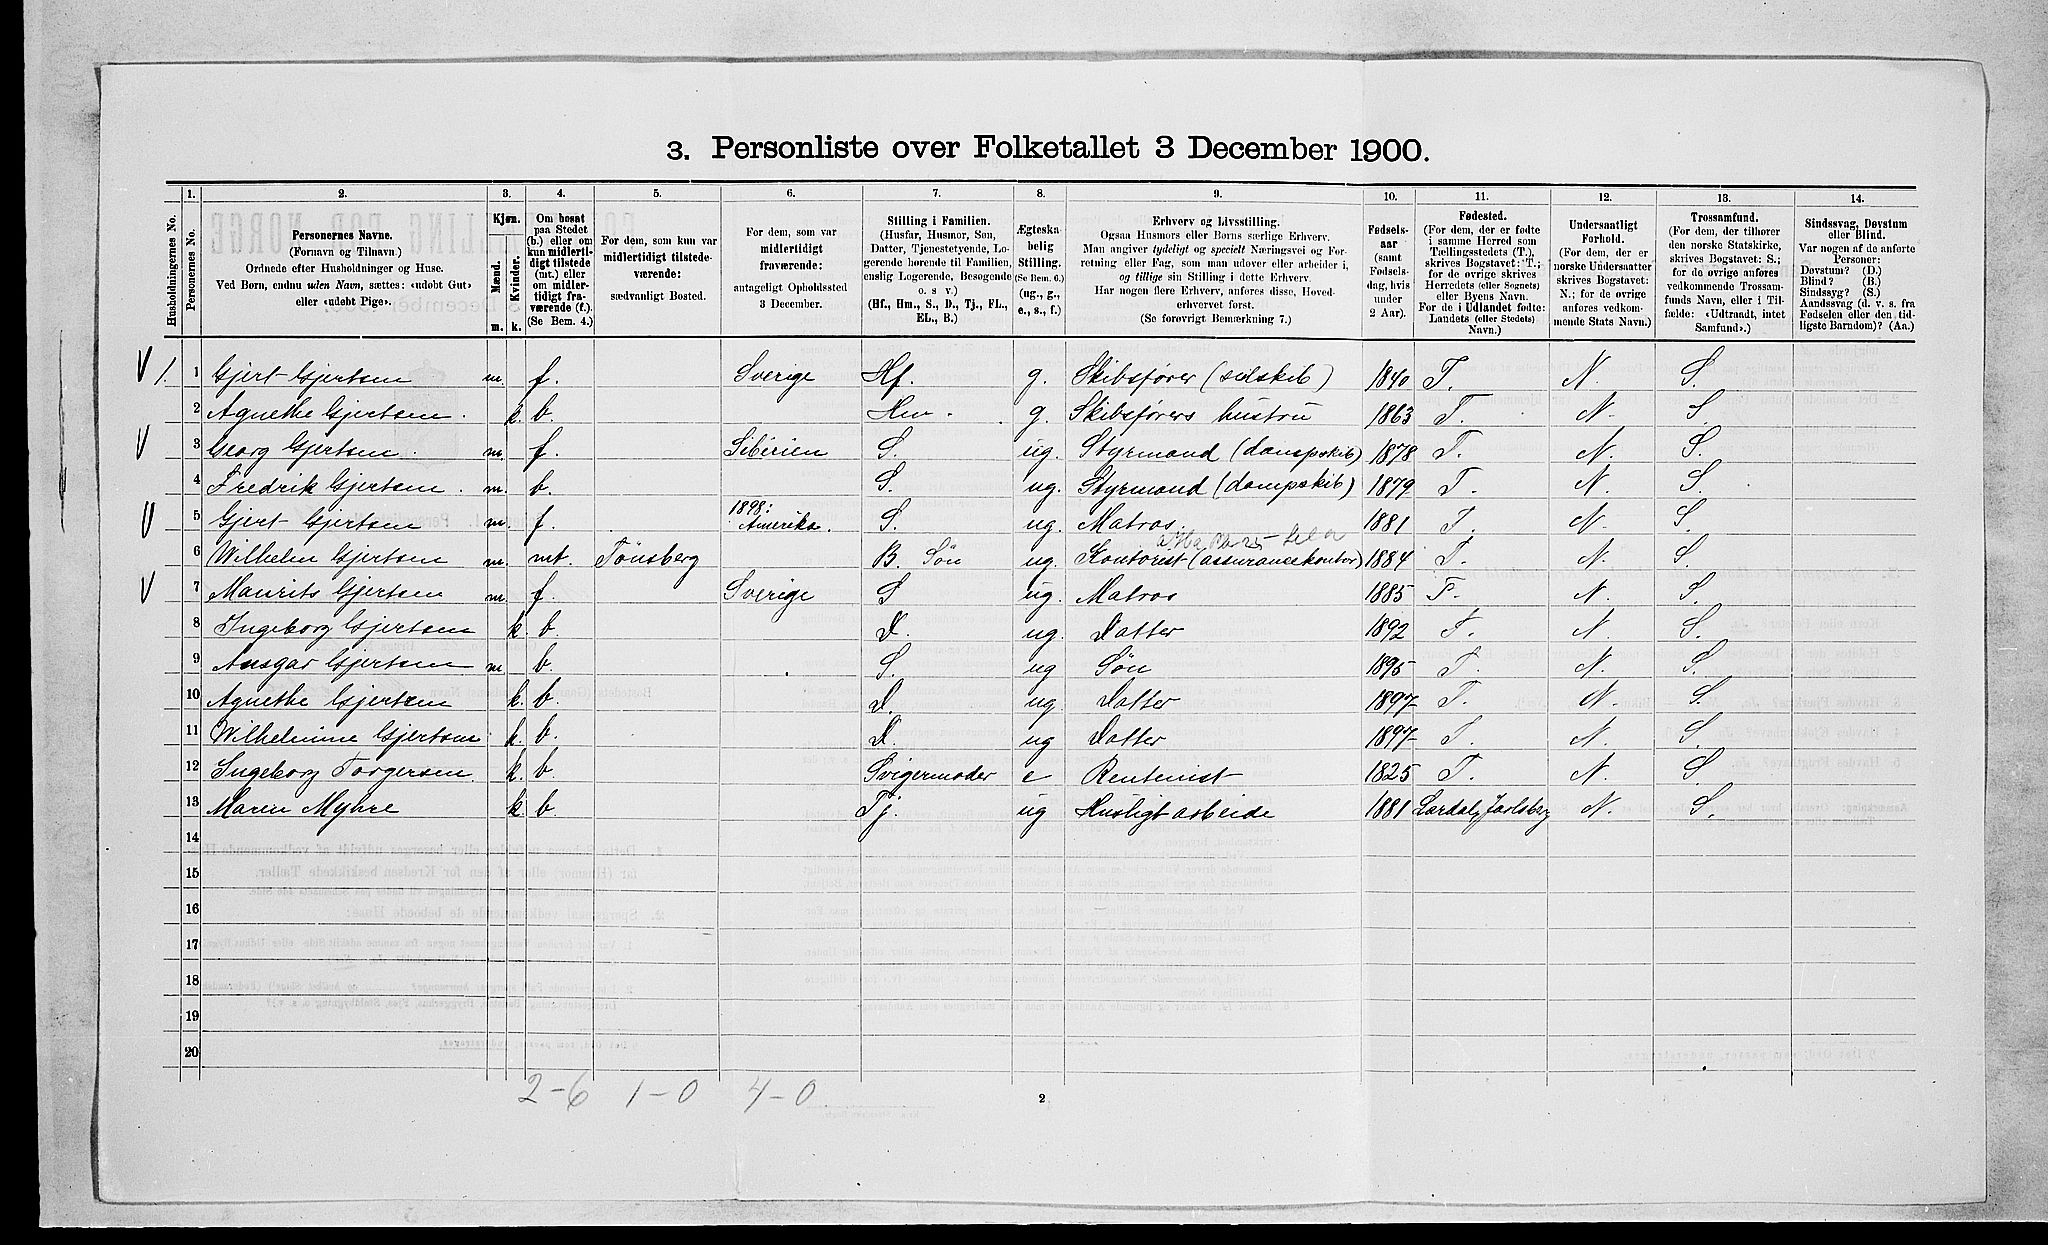 3. Personliste over Folketallet 3 December 1900.
Husholdningernes No.
1. Personernes No.
2. Personernes Navne. (Fornavn og Tilnavn.) Ordnede efter Husholdninger og Huse. Ved Børn, endnu uden Navn, sættes: «udøbt Gut» eller «udøbt Pige».
3. Kjøn. Mænd. m. Kvinder. k.
4. Om bosat paa Stedet (b.) eller om kun midlertidigt tilstede (mt.) eller om midlertidigt fraværende (f.). (Se Bem. 4.)
5. For dem, som kun var midlertidigt tilstedeværende: sædvanligt Bosted.
6. For dem, som var midlertidigt fraværende: antageligt Opholdssted 3 December.
7. Stilling i Familien. (Husfar, Husmor, Søn, Datter, Tjenestetyende, Logerende hørende til Familien, enslig Logerende, Besøgende o. s v.) (Hf., Hm., S., D., Tj., FL., EL., B.)
8. Ægteskabelig Stilling. (Se Bem. 6.) (ug., g., e., s., f.)
9. Erhverv og Livsstilling. Ogsaa Husmors eller Børns særlige Erhverv. Man angiver tydeligt og specielt Næringsvei og Forretning eller Fag, som man udøver eller arbeider i, og tillige sin Stilling i dette Erhverv. Har nogen flere Erhverv, anføres disse, Hovederhvervet først. (Se forøvrigt Bemærkning 7.)
10. Fødselsaar (samt Fødselsdag, hvis under 2 Aar).
11. Fødested. (For dem, der er fødte i samme Herred som Tællingsstedets (T.), skrives Bogstavet: T.; for de øvrige skrives Herredets (eller Sognets) eller Byens Navn. For de i Udlandet fødte: Landets (eller Stedets) Navn.)
12. Undersaatligt Forhold. (For dem, der er norske Undersaatter skrives Bogstavet: N.; for de øvrige anføres vedkommende Stats Navn.)
13. Trossamfund. (For dem, der tilhører den norske Statskirke, skrives Bogstavet: S.; for de øvrige anføres vedkommende Trossamfunds Navn, eller i Tilfælde: «Udtraadt, intet Samfund».)
14. Sindssvag, Døvstum eller Blind. Var nogen af de anførte Personer: Døvstum? (D.) Blind? (B.) Sindssyg? (S.) Aandssvag (d. v. s. fra Fødselen eller den tidligste Barndom)? (Aa.)
V 1. 1 Gjert Gjertsen m. f. Sverige Hf. g. Skibsfører (seilskib) 1840 T. N. S.
2 Agnethe Gjertsen. k. b. Hm. g. Skibsførers hustru 1863 T. N. S
V 3 Georg Gjertsen. m. f. Sibirien S. ug. Styrmand (dampskib) 1878 T. N. S.
4 Fredrik Gjertsen. m. b. S. ug. Styrmand (dampskib) 1879 T. N. S.
V 5 Gjert Gjertsen m. f. 1898: Amerika. S. ug. Matros. 1881 T. N. S.
6 Wilhelm Gjertsen m. mt. Tønsberg B. Søn ug. Kontorist (assurancekontor) 1884 T. N. S.
V 7 Maurits Gjertsen m. f. Sverige S ug. Matros 1885 T. N. S.
8 Ingeborg Gjertsen k. b. D. ug. Datter 1892 T. N. S.
9 Ansgar Gjertsen m b. S. ug Søn 1895 T. N. S.
10 Agnethe Gjertsen k. b. D. ug. Datter 1897 T. N. S.
11 Wilhelmine Gjertsen k. b. D. ug Datter 1897 T. N. S.
12 Ingeborg Torgersen. k. b. Svigermoder e Rentenist 1825 T. N. S
13 Maren Myhre k. b. Tj. ug Husligt arbeide 1881 Lardal, Jarlsberg N. S.
14
15
16
17
18
19
20
2-6 1-0 4-0
2